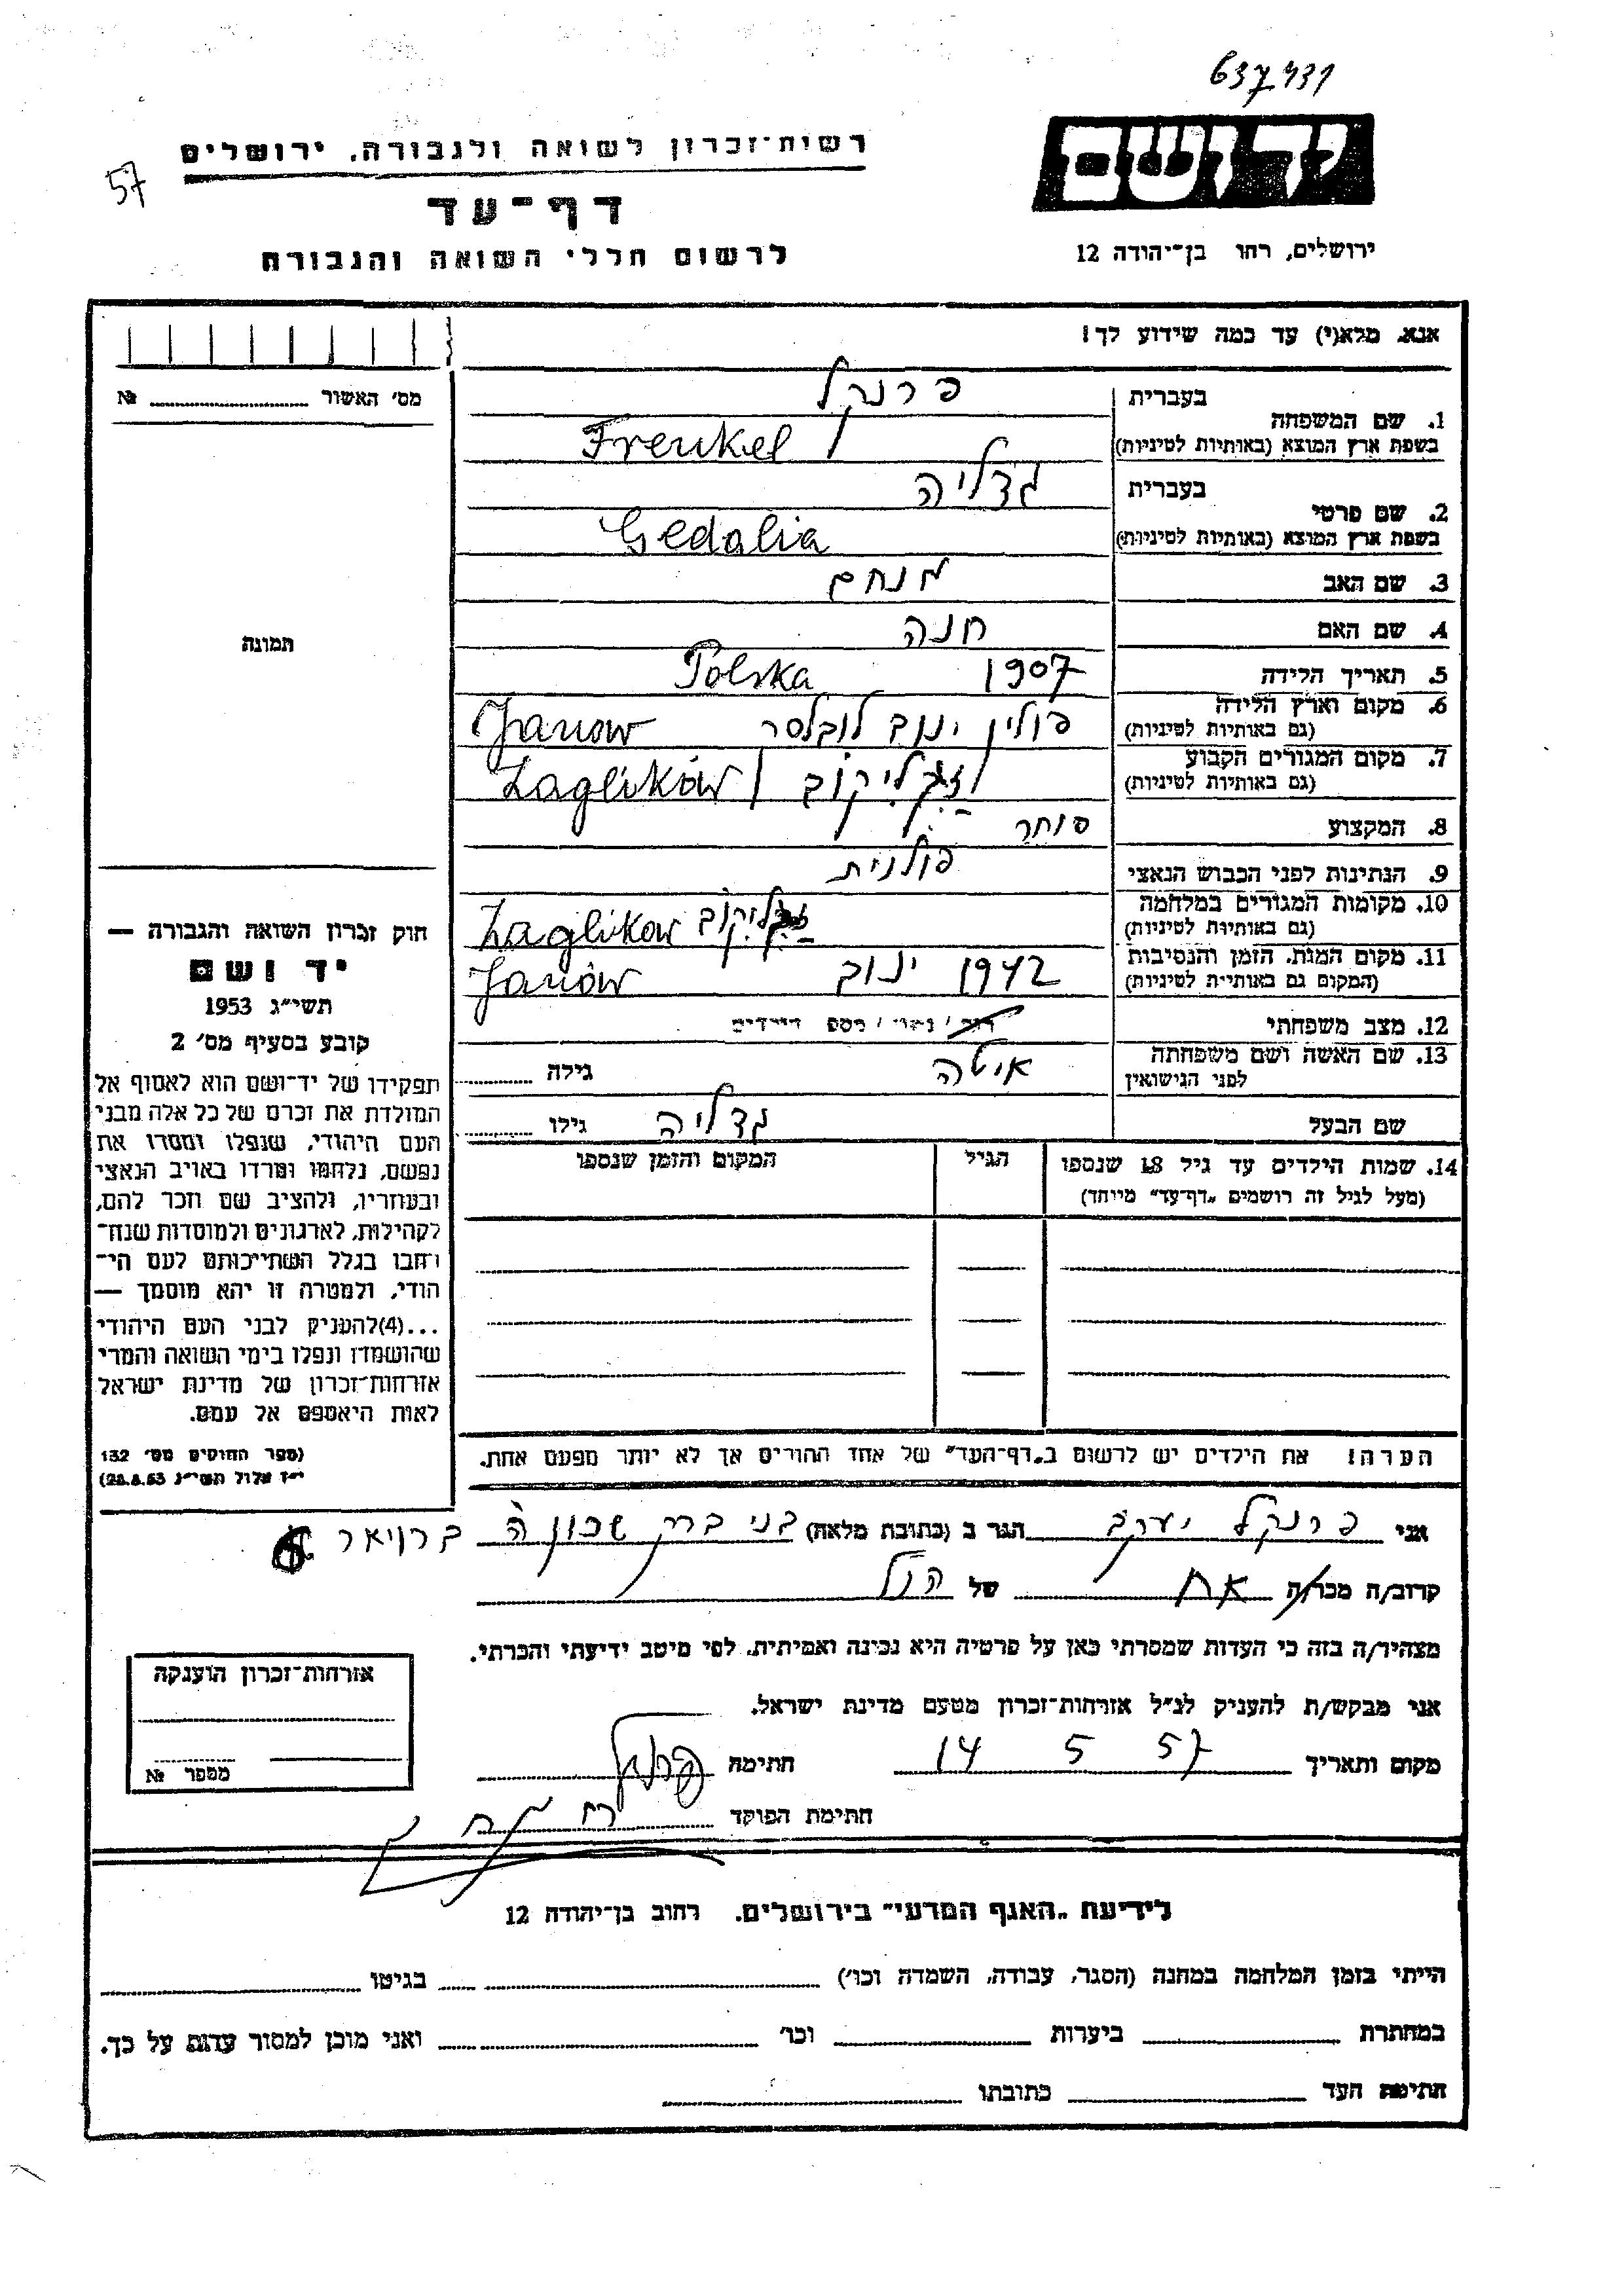 637431
יד ושם
רשות־זכרון לשואה ולגבורה, ירושלים
57
דף־עד
לרשום חללי השואה והגבורה
ירושלים, רחו בן־יהודה 12
אנא, מלא(י) עד כמה שידוע לך!
מס' האשור № 
תמונה
1. שם המשפחה
בעברית פרנקל
בשפת ארץ המוצא (באותיות לטיניות) Frenkel
2. שם פרטי
בעברית גדליה
בשפת ארץ המוצא (באותיות לטיניות) Gedalia
3. שם האב מנחם
4. שם האם חנה
5. תאריך הלידה 1907 Polska
6. מקום וארץ הלידה פולין ינוב לובלסר Janow
(גם באותיות לטיניות)
7. מקום המגורים הקבוע זגליקוב Zaglików
(גם באותיות לטיניות)
8. המקצוע סוחר
9. הנתינות לפני הכבוש הנאצי פולנית
10. מקומות המגורים במלחמה זגליקוב Zaglikow
(גם באותיות לטיניות)
11. מקום המות, הזמן והנסיבות 1942 ינוב Janów
(המקום גם באותיות לטיניות)
12. מצב משפחתי רוק / נשוי / מספר הילדים
13. שם האשה ושם משפחתה איטה גילה
לפני הנישואין
שם הבעל גדליה גילו
14. שמות הילדים עד גיל 18 שנספו הגיל המקום והזמן שנספו
(מעל לגיל זה רושמים "דף־עד" מיוחד)
חוק זכרון השואה והגבורה —
יד ושם
תשי"ג 1953
קובע בסעיף מס' 2
תפקידו של יד־ושם הוא לאסוף אל
המולדת את זכרם של כל אלה מבני
העם היהודי, שנפלו ומסרו את
נפשם, נלחמו ומרדו באויב הנאצי
ובעוזריו, ולהציב שם וזכר להם,
לקהילות, לארגונים ולמוסדות שנח־
רבו בגלל השתייכותם לעם הי־
הודי, ולמטרה זו יהא מוסמך —
...(4)להעניק לבני העם היהודי
שהושמדו ונפלו בימי השואה והמרי
אזרחות־זכרון של מדינת ישראל
לאות היאספם אל עמם.
(ספר החוקים מס' 132
י"ז אלול תשי"ג 28.8.53)
הערה! את הילדים יש לרשום ב"דף־העד" של אחד ההורים אך לא יותר מפעם אחת.
אני פרנקל יעקב הגר ב (כתובת מלאה) בני ברק שכונה ה ברויאר
קרוב/ה מכר/ה אח של הנ"ל
מצהיר/ה בזה כי העדות שמסרתי כאן על פרטיה היא נכונה ואמיתית, לפי מיטב ידיעתי והכרתי.
אני מבקש/ת להעניק לנ"ל אזרחות־זכרון מטעם מדינת ישראל.
מקום ותאריך 14 5 57 חתימה פרנקל
חתימת הפוקד
אזרחות־זכרון הוענקה
מספר №
לידיעת "האגף המדעי" בירושלים, רחוב בן־יהודה 12
הייתי בזמן המלחמה במחנה (הסגר, עבודה, השמדה וכו') בגיטו
במחתרת ביערות וכו' ואני מוכן למסור עדות על כך.
חתימת העד כתובתו